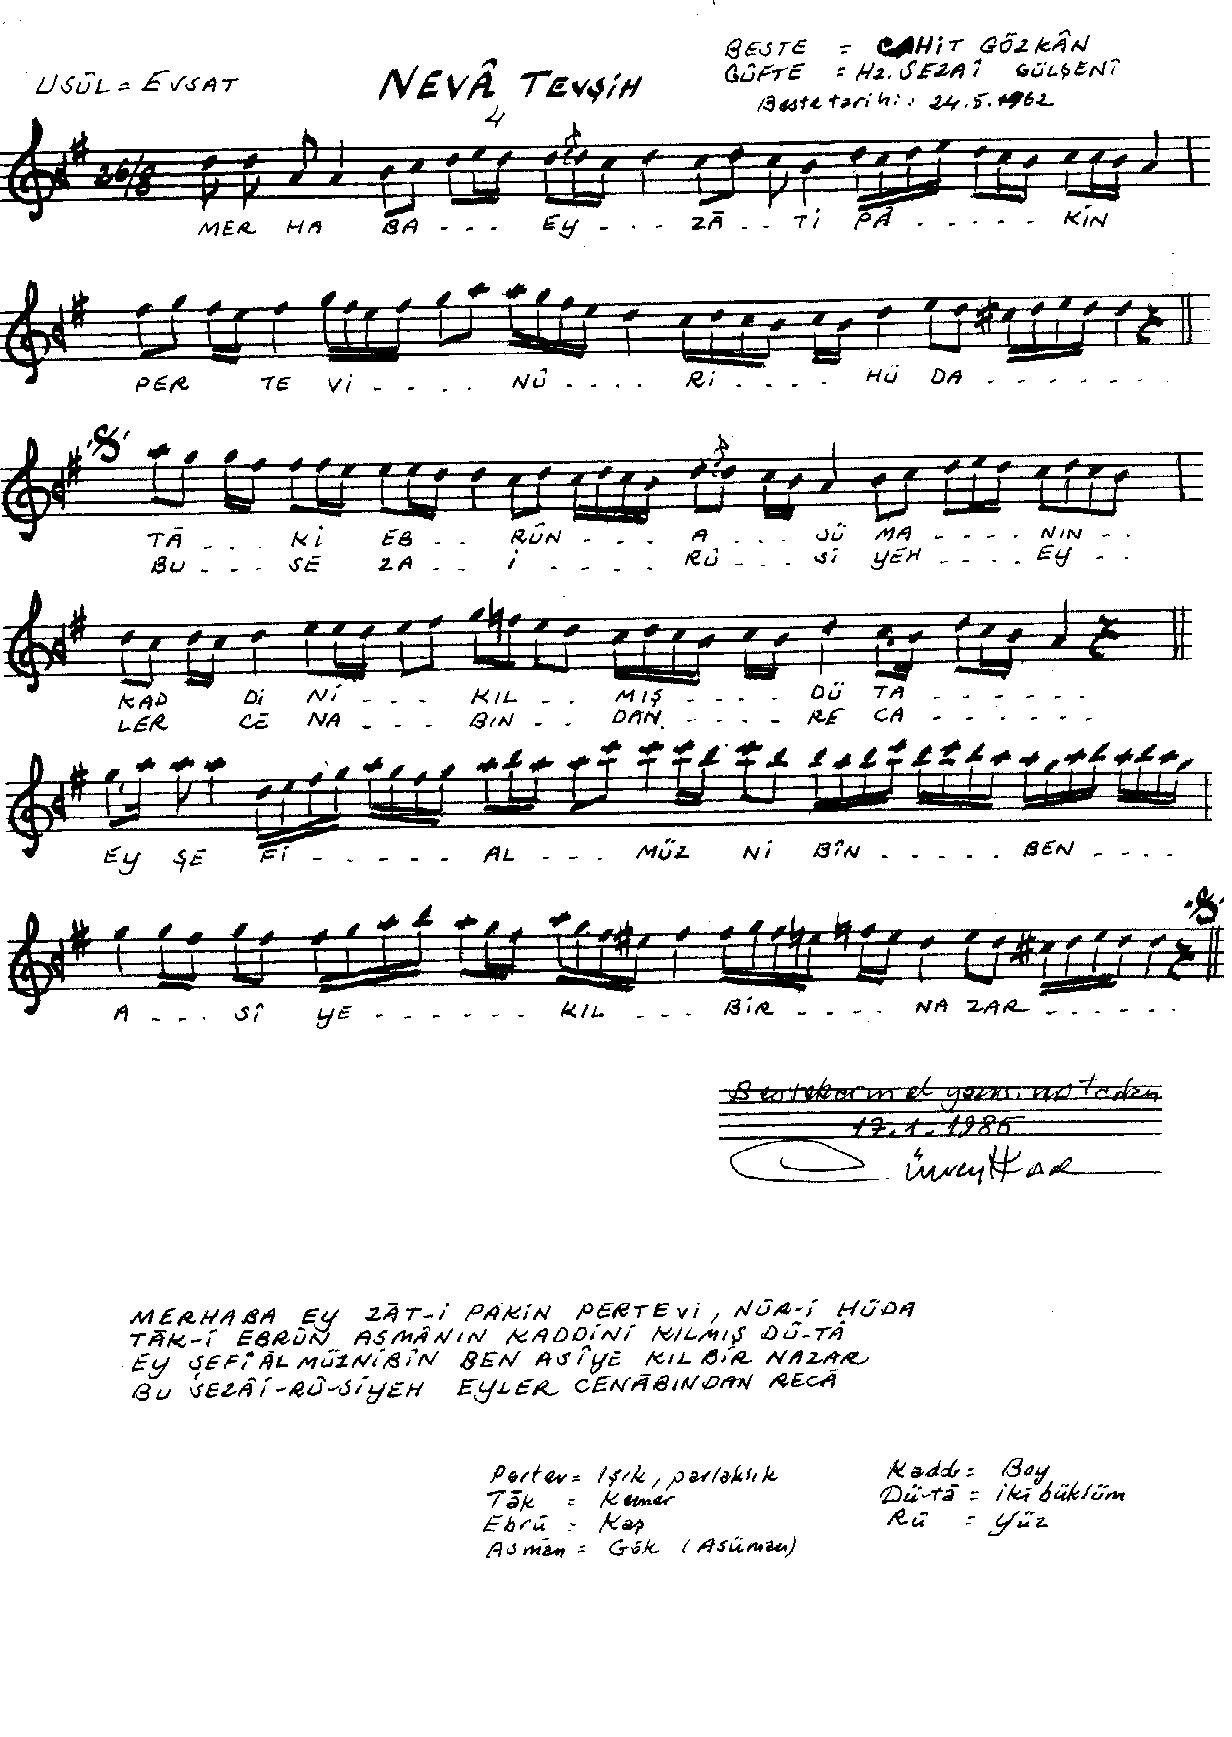 USÛL = EVSAT
NEVÂ TEVŞİH
4
BESTE = CAHİT GÖZKÂN
GÜFTE = HZ. SEZAÎ GÜLŞENÎ
Beste tarihi: 24.5.1962
26/8
MER HA BA - - - EY - - - ZĀ - - Tİ PÂ - - - - - KİN
PER TE Vİ - - - - NÛ - - - - Rİ - - - - HÜ DA - - - - - - -
TĀ - - - Kİ EB - - RÛN - - - - A - - - SÜ MA - - - - NIN - -
BU - - - SE ZA - - İ - - - - - RÛ - - - Sİ YEH - - - - EY - -
KAD Dİ Nİ - - - KIL - - MIŞ - - - - DÜ TA - - - - - -
LER CE NA - - - BIN - - DAN - - - - RE CA - - - - - -
EY ŞE Fİ - - - - - AL - - - MÜZ Nİ BÎN - - - - - BEN - - - -
A - - - SÎ YE - - - - - - KIL - - - BİR - - - - NA ZAR - - - - - -
Bestekarın el yazısı notadan
17.1.1985
MERHABA EY ZĀT-İ PÂKİN PERTEVİ, NÛR-İ HÜDA
TĀK-İ EBRÛN ASMÂNIN KADDİNİ KILMIŞ DÛ-TÂ
EY ŞEFÎÂL MÜZNİBÎN BEN ASÎYE KIL BİR NAZAR
BU SEZÂİ-RÛ-SİYEH EYLER CENĀBINDAN RECÂ
Pertev = Işık, parlaklık
Tāk = Kemer
Ebrû = Kaş
Asmān = Gök (Asüman)
Kadd = Boy
Dü-tā = İki büklüm
Rû = Yüz